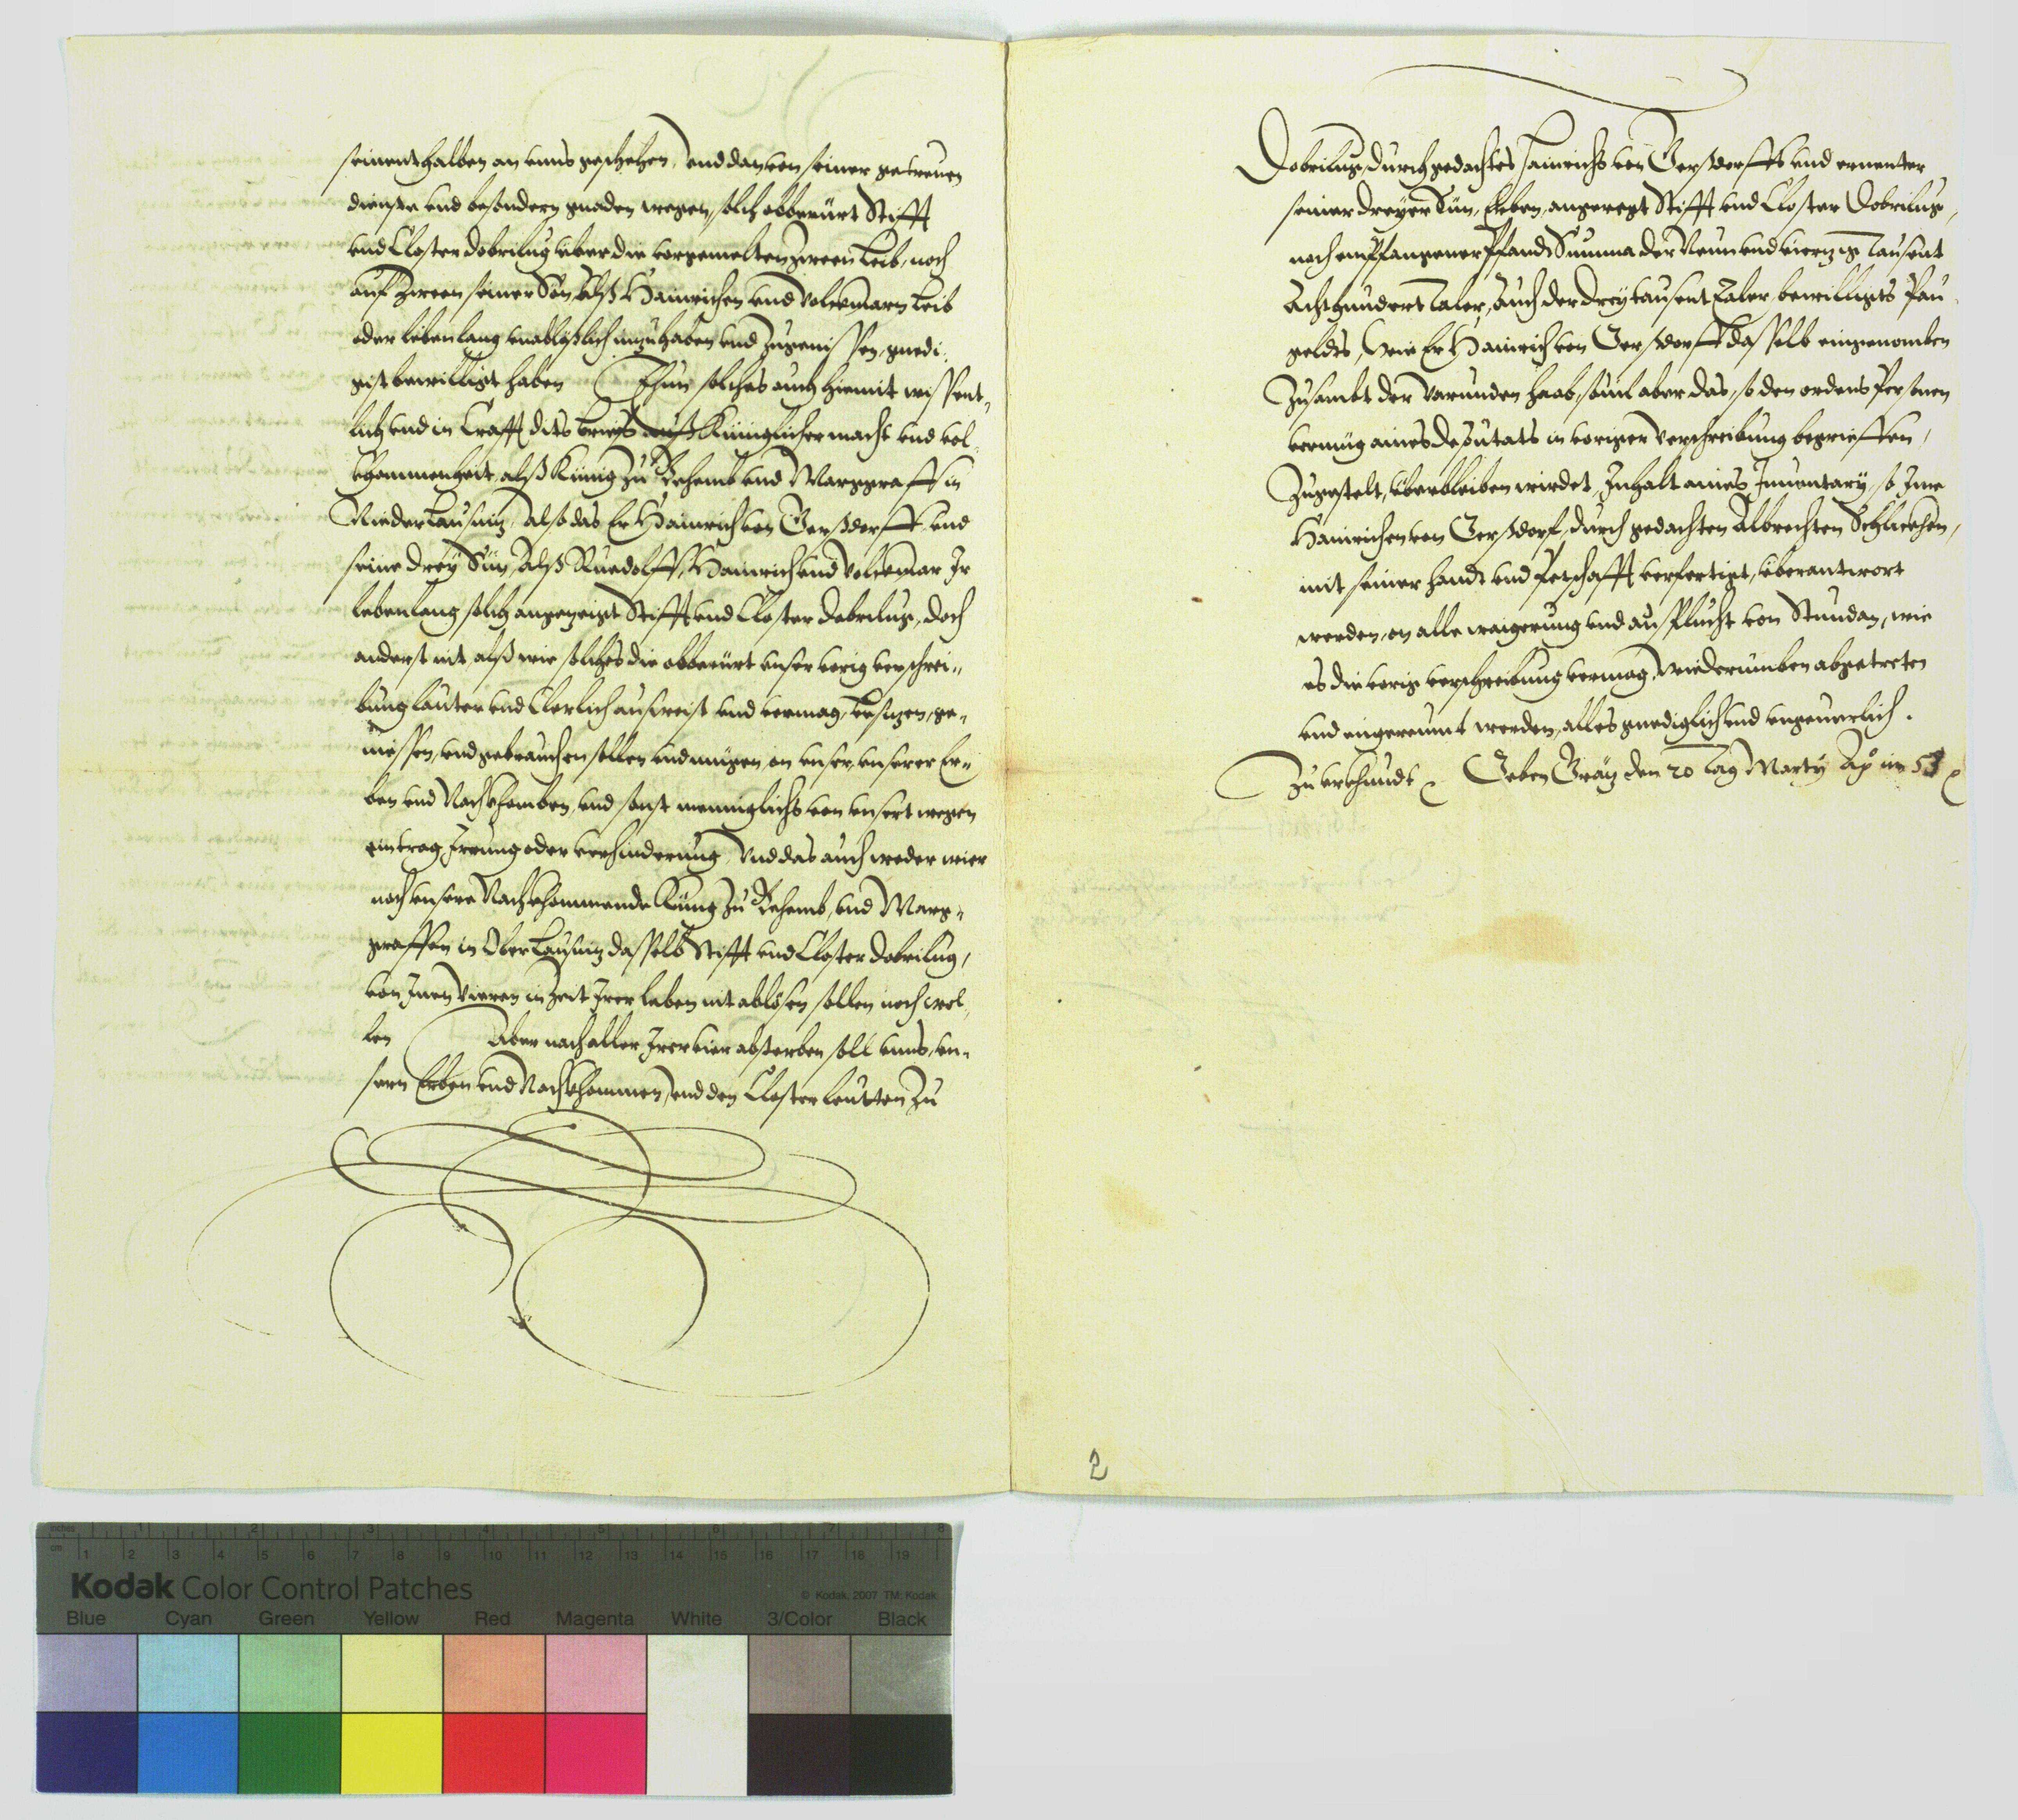 seinenthalben an unns geschehen, und dan von seiner getreuen
dienste und besondern gnaden wegen, solch obberürt Stifft
und Closter Dobrilug über die vorgemelten zween Leib, noch
auf zween seiner Sön, Alß Hainrichen und Volckmarn Leib
oder lebenlang unablößlich inzuhaben und zugeniessen, gnedi-
gist bewilligt haben Thun solches auch hiemit wissent-
lich und in Crafft dits briefs auß Küniglicher macht und vol-
khommenheit, alß Künig zu Behemb und Marggraff in
Nieder Lausnitz, also das Er Hainrich von Gerßdorff und
seine drey Sün, Alß Ruedolff, Hainrich und Volckmar Ir
lebenlang solch angezeigt Stifft und Closter Dobrilug, doch
anderst nit alß wie solches die obberürt unser vorig verschrei-
bung lauter und Clerlich ausweist und vermag, besitzen, ge-
niessen, und gebrauchen sollen und mügen, on unser, unserer Er-
ben und Nachkhomben, und sonst menniglichs von unsert wegen
eintrag, Irrung oder verhinderung, Und das auch weder wier
noch unsere Nachkhommende Künig zu Behemb, und Marg-
graffen in Ober Lausnitz dasselb Stifft und Closter Dobrilug,
von Inen Vieren in Zeit Irer leben nit ablösen sollen noch wel-
len Aber nach aller Irer vier absterben soll unns, un-
sern Erben und Nachkhommen, und den Closter leutten zu
Dobrilug, durch gedachtes Hainrichs von Gerßdorffs und ernenter
seiner dreyer Sün, Erben, angeregt Stifft und Closter Dobrilug,
nach empfangener Pfandt Summa der Neun und vierzig Tausent
Achthundert Taler, Auch der drey tausent Taler, bewilligts Pau-
geldts, Wie Er Hainrich von Gerßdorff dasselb eingenomben
Zusambt der varunden haab, souil aber das, so den ordens Personen
vermüg aines deputats in voriger verschreibung begrieffen,
Zugestelt, überbleiben wirdet, Inhalt aines Inuentary, so Ime
Hainrichen von Gerßdorf, durch gedachten Albrechten Schlickhen,
mit seiner handt und Petschafft verfertigt, überantwort
worden, on alle waigerung und ausflucht von Stundan, wie
es die vorig verschreibung vermag, Widerumben abgetreten
und eingereumt werden, alles gnediglich und ungeuerlich.
Zu urkhundt Geben Grätz den 20 tag Marty Ao im 53
2
inches 1 2 3 4 5 6 7 8
cm 1 2 3 4 5 6 7 8 9 10 11 12 13 14 15 16 17 18 19
Kodak Color Control Patches © Kodak, 2007 TM: Kodak
Blue Cyan Green Yellow Red Magenta White 3/Color Black